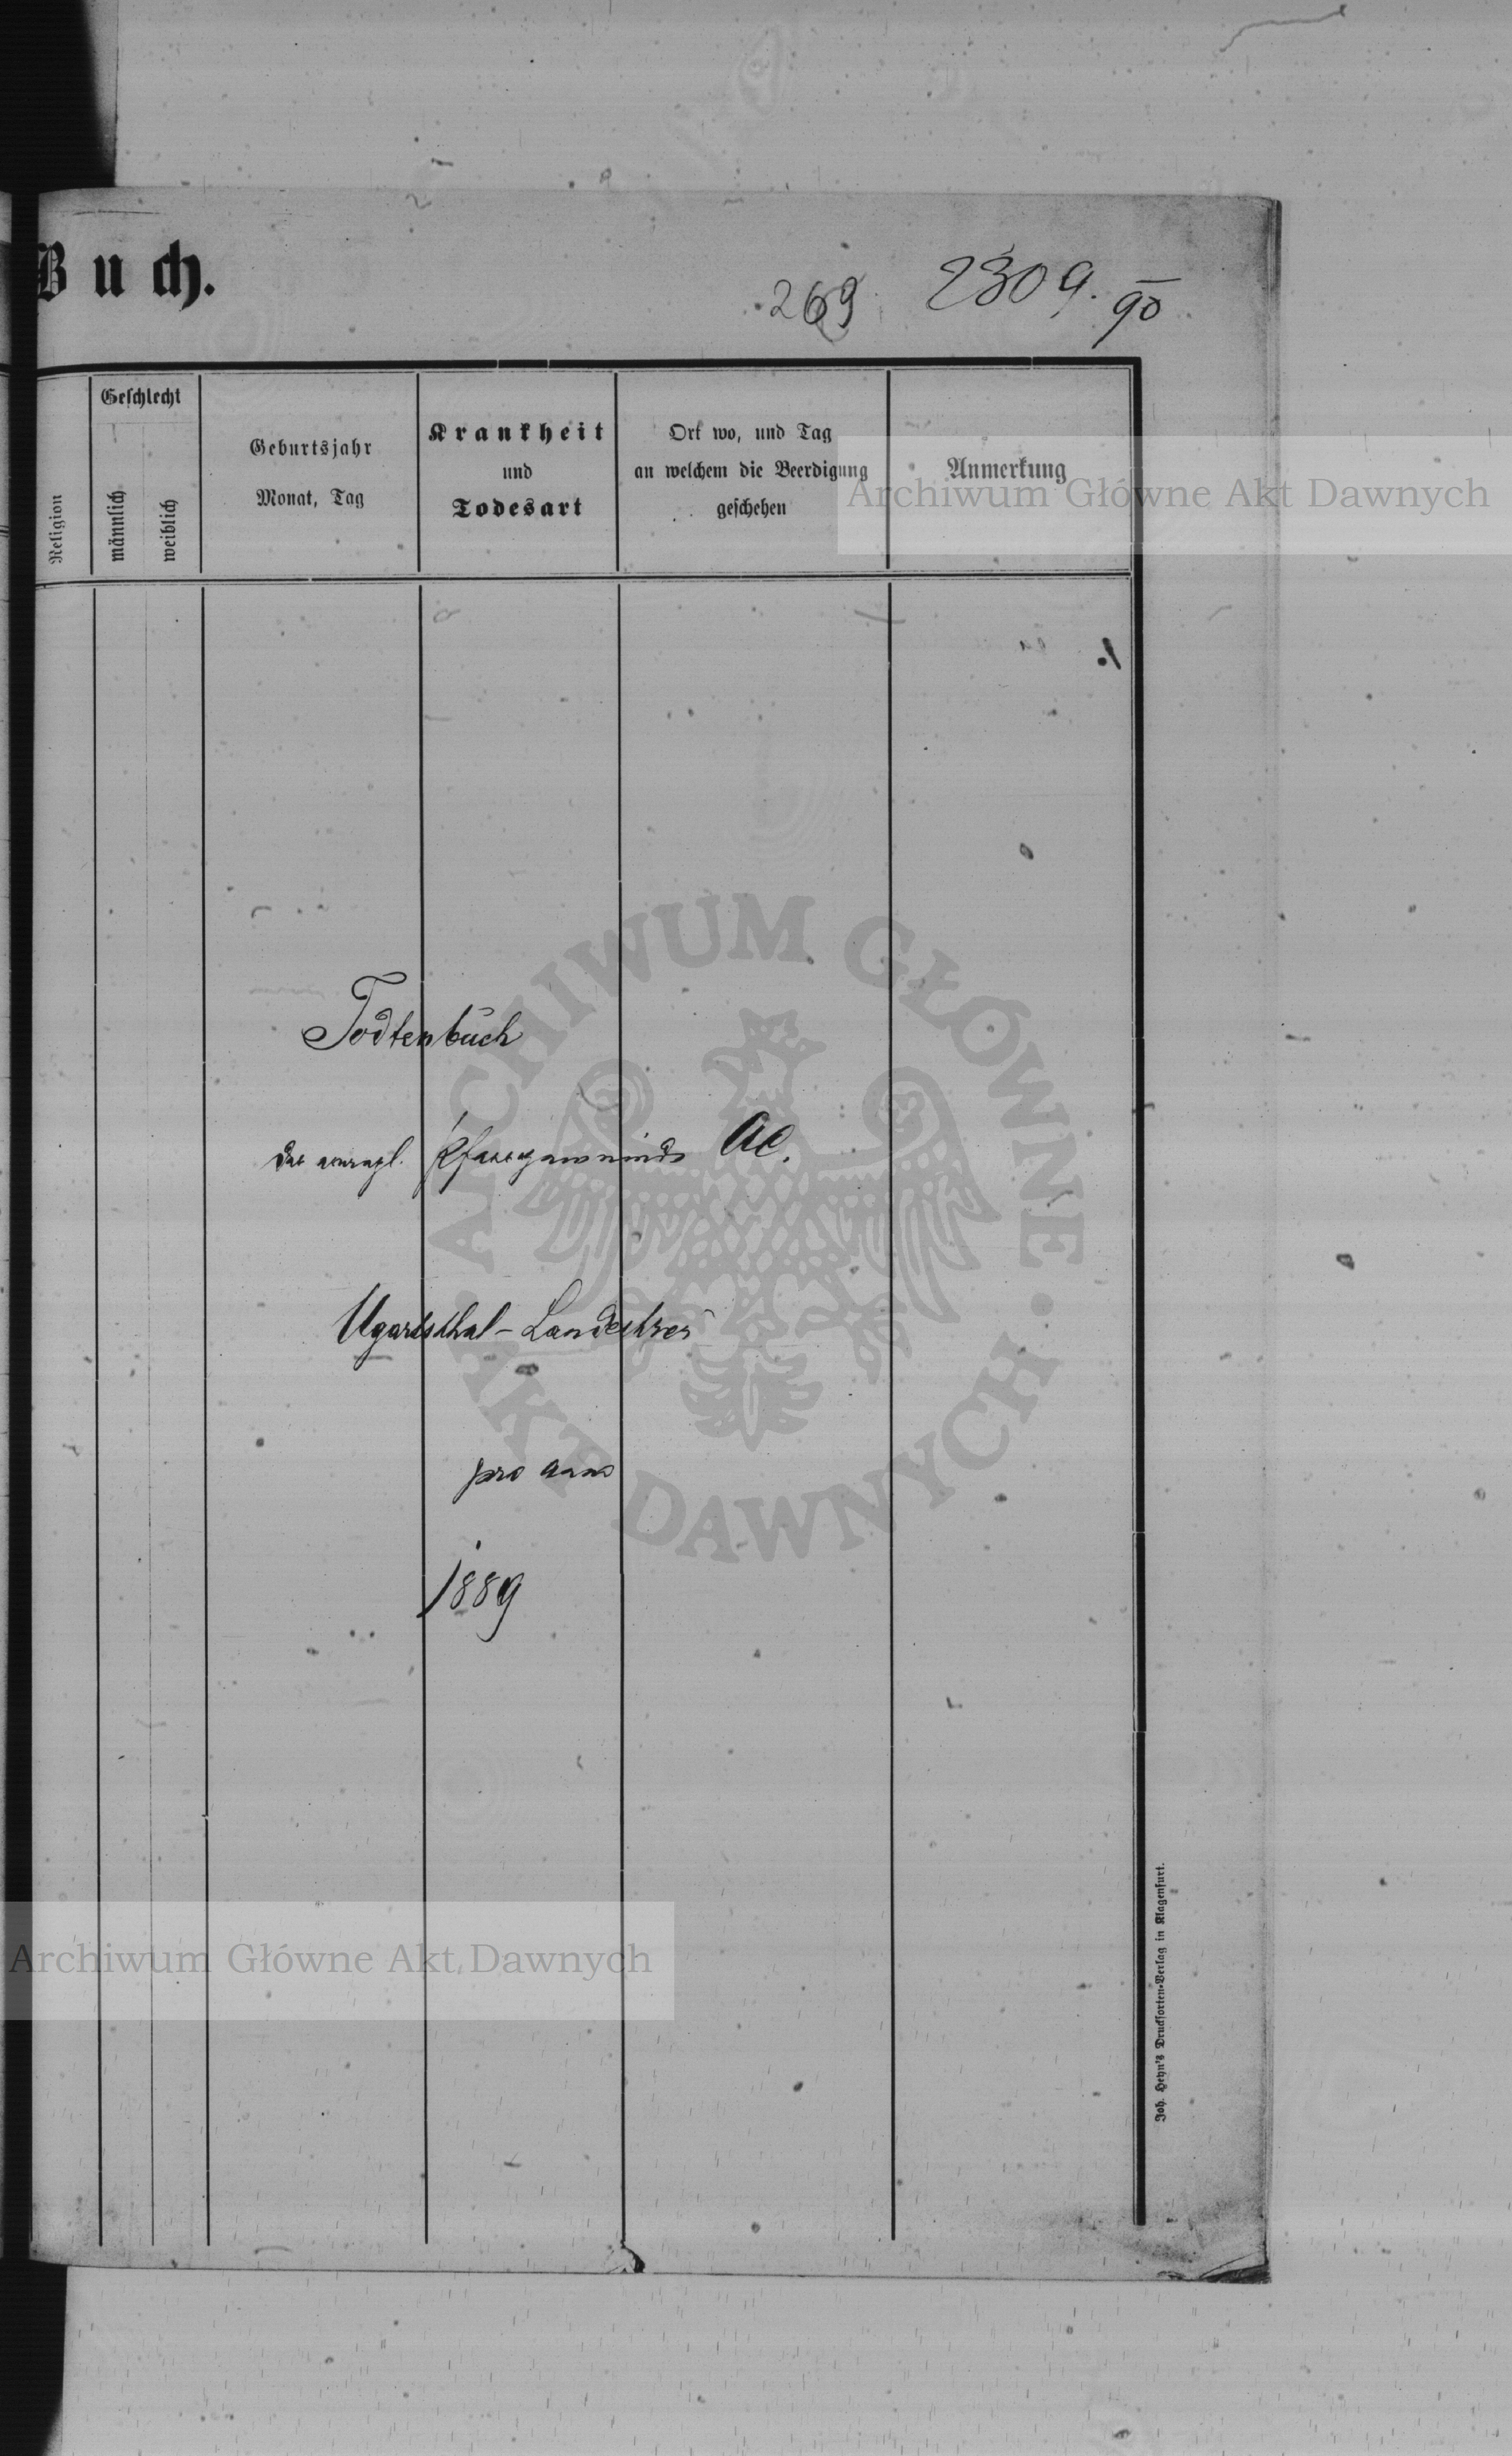 Buch.
269 2309. 90
Religion
Geschlecht
männlich
weiblich
Geburtsjahr
Monat, Tag
Krankheit
und
Todesart
Ort wo, und Tag
an welchem die Beerdigung
geschehen
Anmerkung
Archiwum Główne Akt Dawnych
Todtenbuch
der evangl. Pfarrgemeinde AC.
Ugartsthal - Landestreu
pro anno
1889
ARCHIWUM GŁÓWNE
AKT DAWNYCH
Archiwum Główne Akt Dawnych
Joh. Heyn's Drucksorten-Verlag in Klagenfurt.